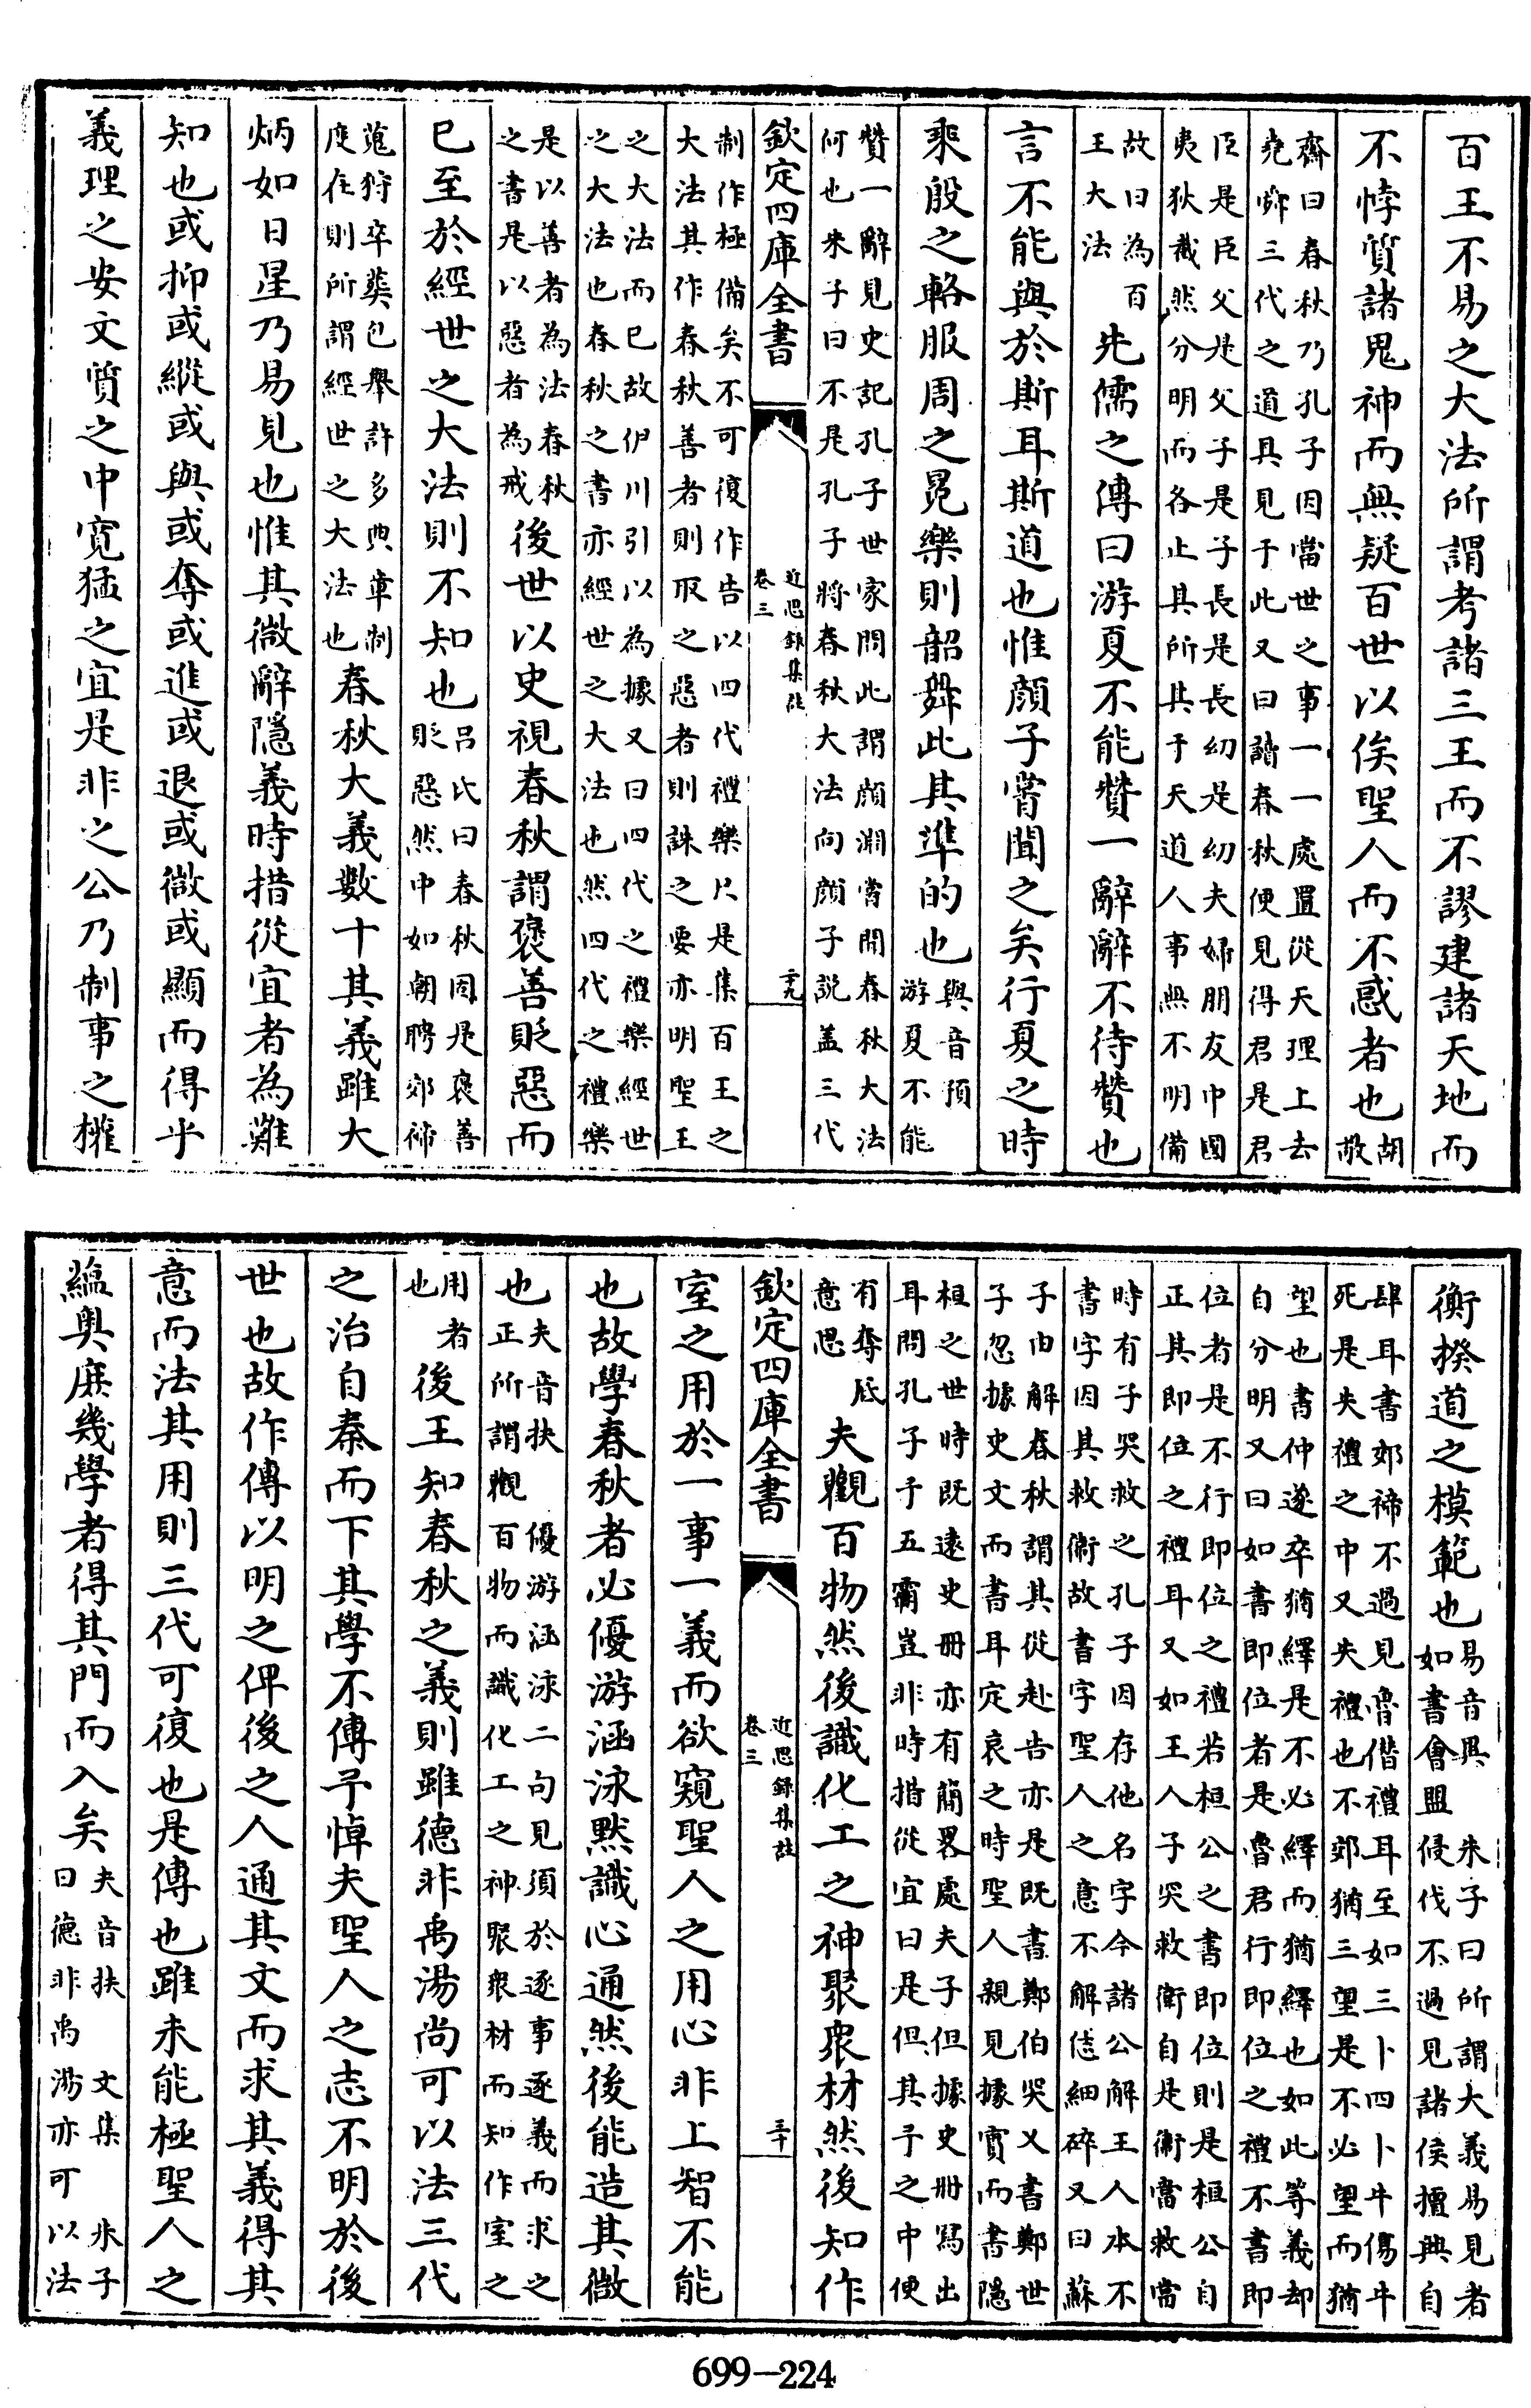 百王不易之大法所謂考諸三王而不謬建諸天地而
不悖質諸鬼神而無疑百世以俟聖人而不惑者也胡
敬
齋曰春秋乃孔子因當世之事一一處置從天理上去
堯舜三代之道具見于此又曰讀春秋便見得君是君
臣是臣父是父子是子長是長幼是幼夫婦朋友中國
夷狄截然分明而各止其所其于天道人事無不明備
故曰為百
王大法
先儒之傳曰游夏不能贊一辭辭不待贊也
言不能與於斯耳斯道也惟顔子嘗聞之矣行夏之時
乘殷之輅服周之冕樂則韶舞此其準的也
與音預
游夏不能
贊一辭見史記孔子世家問此謂顔淵嘗聞春秋大法
何也朱子曰不是孔子將春秋大法向顔子説盖三代
欽定四庫全書
近思録集註
卷三
二十九
制作極備矣不可復作告以四代禮樂只是集百王之
大法其作春秋善者則取之惡者則誅之要亦明聖王
之大法而已故伊川引以為據又曰四代之禮樂經世
之大法也春秋之書亦經世之大法也然四代之禮樂
是以善者為法春秋
之書是以惡者為戒
後世以史視春秋謂褒善貶惡而
已至於經世之大法則不知也
呂氏曰春秋固是褒善
貶惡然中如朝聘郊禘
蒐狩卒葬已舉許多典章制
度在則所謂經世之大法也
春秋大義數十其義雖大
炳如日星乃易見也惟其微辭隱義時措從宜者為難
知也或抑或縱或與或奪或進或退或微或顯而得乎
義理之安文質之中寬猛之宜是非之公乃制事之權
衡揆道之模範也
易音異 朱子曰所謂大義易見者
如書會盟侵伐不過見諸侯擅興自
肆耳書郊禘不過見魯僭禮耳至如三卜四卜牛傷牛
死是失禮之中又失禮也不郊猶三望是不必望而猶
望也書仲遂卒猶繹是不必繹而猶繹也如此等義却
自分明又曰如書即位者是魯君行即位之禮不書即
位者是不行即位之禮若桓公之書即位則是桓公自
正其即位之禮耳又如王人子突救衛自是衛當救當
時有子突救之孔子因存他名字今諸公解王人本不
書字因其救衛故書字聖人之意不解恁細碎又曰蘇
子由解春秋謂其從赴告亦是既書鄭伯突又書鄭世
子忽據史文而書耳定哀之時聖人親見據實而書隱
桓之世時既遠史册亦有簡畧處夫子但據史册寫出
耳問孔子于五霸豈非時措從宜曰是但其予之中便
有奪底
意思
夫觀百物然後識化工之神聚衆材然後知作
欽定四庫全書
近思録集註
卷三
三十
室之用於一事一義而欲窺聖人之用心非上智不能
也故學春秋者必優游涵泳默識心通然後能造其微
也
夫音扶 優游涵泳二句見須於逐事逐義而求之
正所謂觀百物而識化工之神聚衆材而知作室之
用者
也
後王知春秋之義則雖德非禹湯尚可以法三代
之治自秦而下其學不傳予悼夫聖人之志不明於後
世也故作傳以明之俾後之人通其文而求其義得其
意而法其用則三代可復也是傳也雖未能極聖人之
蘊奥庶幾學者得其門而入矣
夫音扶 文集 朱子
曰德非禹湯亦可以法
699-224